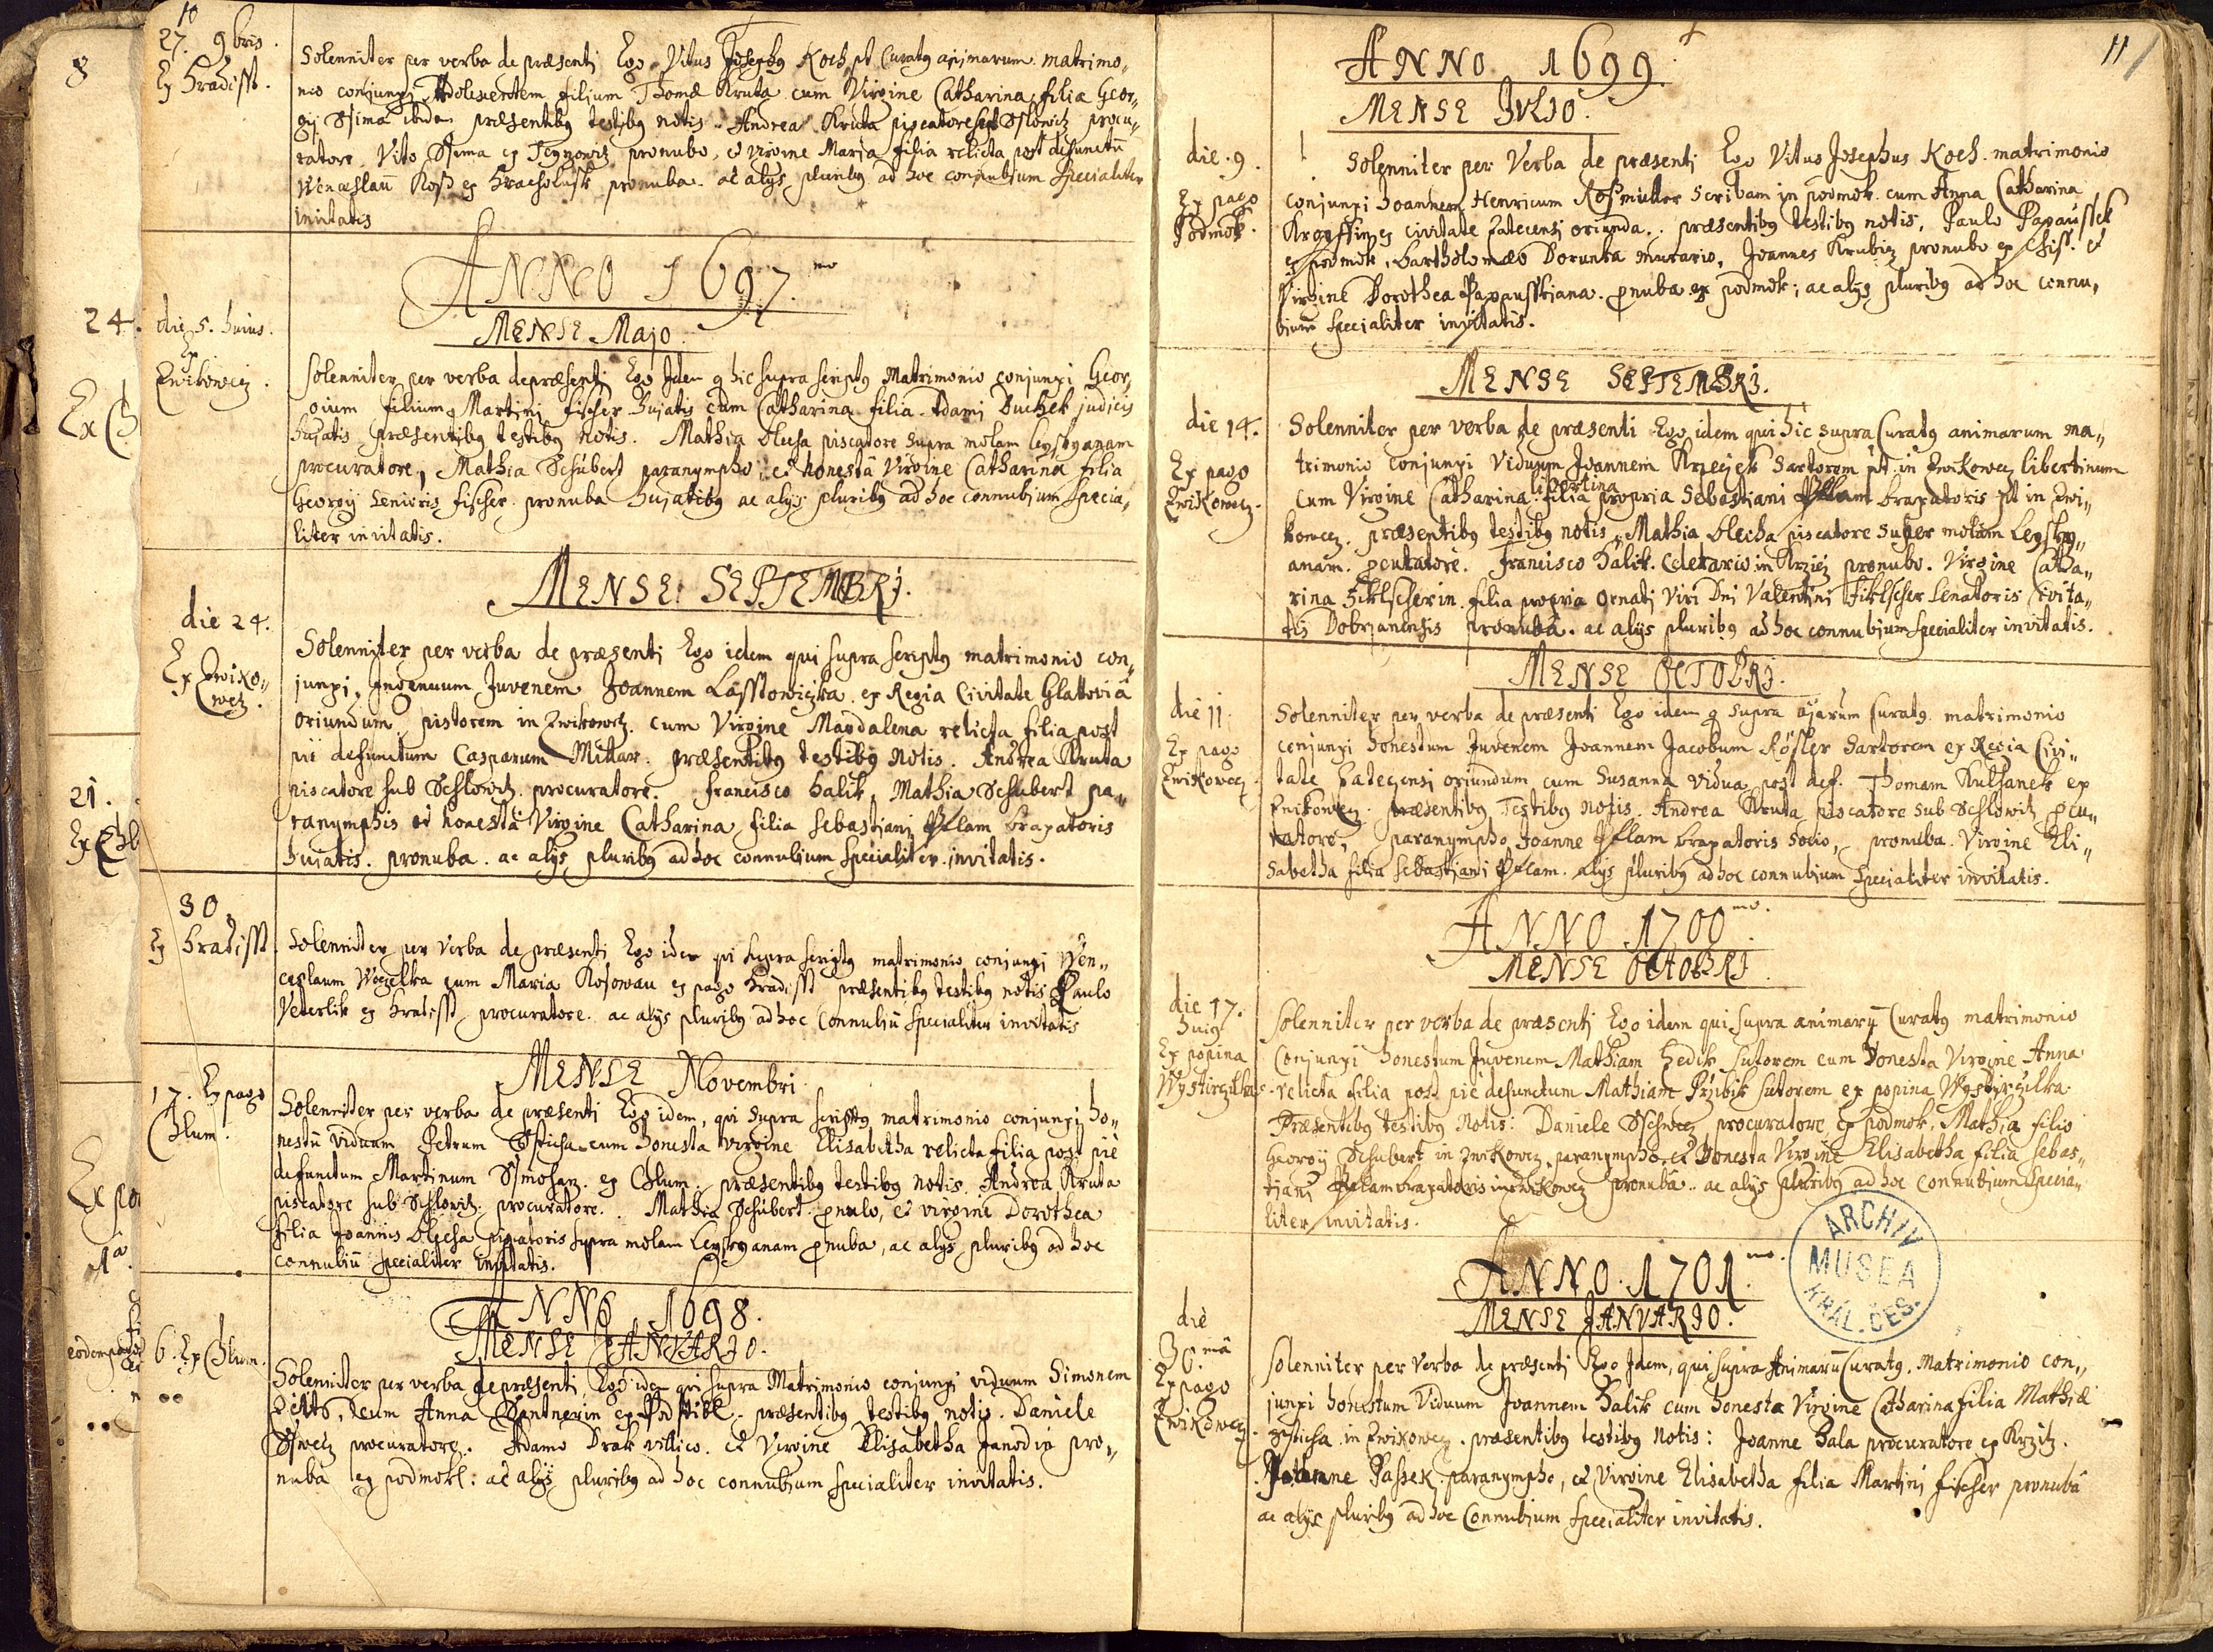 10
27. 9bris.
Ex Hradisst.
Solenniter per verba de præsenti Ego Vitus Josephus Koch pt Curatg animarum matrimo„
nio conjunxi Adolescentem filium Thomæ Kruta cum Virgine Catharina filia Geor„
gij Ssima ibidem præsentibg testibg notis. Andrea Kruta piscatore sub Sslowitz procu„
ratore, Vito Ssima ex Teynowitz pronubo, et virgine Maria filia relicta post defunctū
Wenceslaū Koss ex Hracholusk pronuba. ac alys pluribg ad hoc connubium specialiter
invitatis
ANNO 1697.mo
MENSE Majo.
die 5. huius.
Ex
Zwikowez.
Solenniter per verba de præsenti Ego Idem q hic supra scriptg Matrimonio conjunxi Geor„
gium filium Martini fischer hujatis cum Catharina filia Adami Duchek judicis
hujatis præsentibg testibg notis. Mathia blecha piscatore supra molam leyskyanam
procuratore, Mathia Schubert paranympho, et honestâ Virgine Catharina filia
Georgij Senioris fischer pronuba hujatibg ac alys pluribg ad hoc connubium specia„
liter invitatis.
MENSE: SEPTEMBRJ.
die 24.
Ex Zwiko„
wez.
Solenniter per verba de præsenti Ego idem qui supra scriptg matrimonio con„
junxi, Ingenuum Juvenem Joannem Lasstowiczka ex Regia Civitate Glattoviâ
oriundum pistorem in Zwikowez. cum Virgine Magdalena relicta filia post
piè defunctum Casparum Mittar. præsentibg testibg notis. Andrea Kruta
piscatore sub Schlowitz procuratore. francisco halik, Mathia Schubert pa„
ranymphis et honestâ Virgine Catharina filia sebastiani Pflam braxatoris
hujatis. pronuba. ac alys pluribg ad hoc connubium specialiter invitatis.
30.
Ex Hradisst.
Solenniter per Verba de præsenti Ego idem qui supra scriptg matrimonio conjunxi Wen„
ceslaum Wogelka cum Maria Kosowau ex pago Hradisst præsentibg testibg notis Paulo
Veterlik ex Hradisst procuratore. ac alys pluribg ad hoc Connubiū specialiter invitatis
MENSE Novembri.
17. Ex pago
Chlum.
Solenniter per verba de præsenti Ego idem, qui supra scriptg matrimonio conjunxi ho„
nestū viduum Petrum Spicha cum honesta virgine Elisabetha relicta filia post piè
defunctum Martinum Ssmolan. ex Chlum. præsentibg testibg notis. Andrea Kruta
piscatore sub Schlowitz. procuratore. Mathia Schubert pnubo, et virgine Dorothea
filia Joannis blecha piscatoris supra molam leyskyanam pnuba, ac alys pluribg ad hoc
connubiū specialiter invitatis.
ANNO 1698.
MENSE JANVARJO.
6. Ex Chlum.
Solenniter per verba de præsenti Ego idem qui supra Matrimonio conjunxi viduum Simonem
cum Anna præsentibg testibg notis. Daniele
Sswetz procuratore. Adamo Drak villico. et Virgine Elisabetha pro„
nuba ex podmokl: ac alys pluribg ad hoc connubium specialiter invitatis.
11
ANNO 1699.
MENSE JVLIO.
die 9.
Ex pago
Podmok.
Solenniter per Verba de præsenti Ego Vitus Josephus Koch matrimonio
conjunxi Joannem Henricum Rosmuller Scribam in podmok. cum Anna Catharina
ex civitate Zatecensi oriunda. præsentibg testibg notis, Paulo Papaussek
ex podmok, bartholomæo Dorunka murario, Joannes Krubiz pronubo ex Chiss. et
Virgine Dorothea Papausskiana. pnuba ex podmok; ac alys pluribg ad hoc connu„
bium specialiter invitatis.
MENSE SEPTEMBRJ.
die 14.
Ex pago
Zwikowez.
Solenniter per verba de præsenti Ego idem qui hic supra Curatg animarum ma„
trimonio conjunxi Viduum Joannem Krzeczek Sartorem pt in Zwikowez libertinum
libertina
cum Virgine Catharina filia propria Sebastiani Pflam braxatoris pt in Zwi„
kowez. præsentibg testibg notis, Mathia blecha piscatore super molam Leysky„
anam. pcuratore. francisco halik. in Krziez pronubo. Virgine Catha„
rina Fiklscherin. filia propria Ornati Viri Dni Valentini Fiklscher Senatoris Civita„
tis Dobrzanensis pronubâ. ac alijs pluribg ad hoc connubium specialiter invitatis.
MENSE OCTOBRJ.
die 11.
Ex pago
Zwikowez.
Solenniter per verba de præsenti Ego idem q supra ajarum curatg matrimonio
conjunxi honestum Juvenem Joannem Jacobum Rösler Sartorem ex Regia Civi„
tate Zatecensi oriundum cum Susanna Vidua post def. Thomam Kulhanek ex
Zwikowez. præsentibg Testibg notis. Andrea Kruta piscatore sub Schlowitz pcu„
ratore, paranympho Joanne Pflam braxatoris socio, pronuba. Virgine Eli„
sabetha filia sebastiani Pflam. alys pluribg ad hoc connubium specialiter invitatis.
ANNO 1700mo.
MENSE OCTOBRI.
die 17.
huig
Ex popina
Wystirczilka.
Solenniter per verba de præsenti Ego idem qui supra animarū Curatg matrimonio
Conjunxi honestum Juvenem Mathiam hedik sutorem cum honesta Virgine Anna
relicta filia post piè defunctum Mathiam Przibik sutorem ex popina Wystyrczilka
Præsentibg testibg Notis: Daniele Schwez procuratore ex podmok, Mathia filio
Georgij Schubert in Zwikowez, paranympho, et honesta Virgine Elisabetha filia sebas„
tiani Pflam braxatoris in Zwikowez pronubâ. ac alijs pluribg ad hoc connubium Specia„
liter invitatis.
ARCHIV
MUSEA
KRÁL. ČES.
ANNO. 1701.mo.
MENSE JANVARJO.
die
30.mâ
Ex pago
Zwikowez.
Solenniter per Verba de præsenti Ego Idem, qui supra Animarū Curatg. Matrimonio con„
junxi honestum Viduum Joannem halik cum honesta Virgine Catharina filia Mathiæ
in Zwikowez. præsentibg testibg Notis: Joanne hala procuratore ex Krzitz.
Joanne Passek paranympho, et Virgine Elisabetha filia Martini fischer pronubâ
ac alijs pluribg ad hoc Connubium specialiter invitatis.